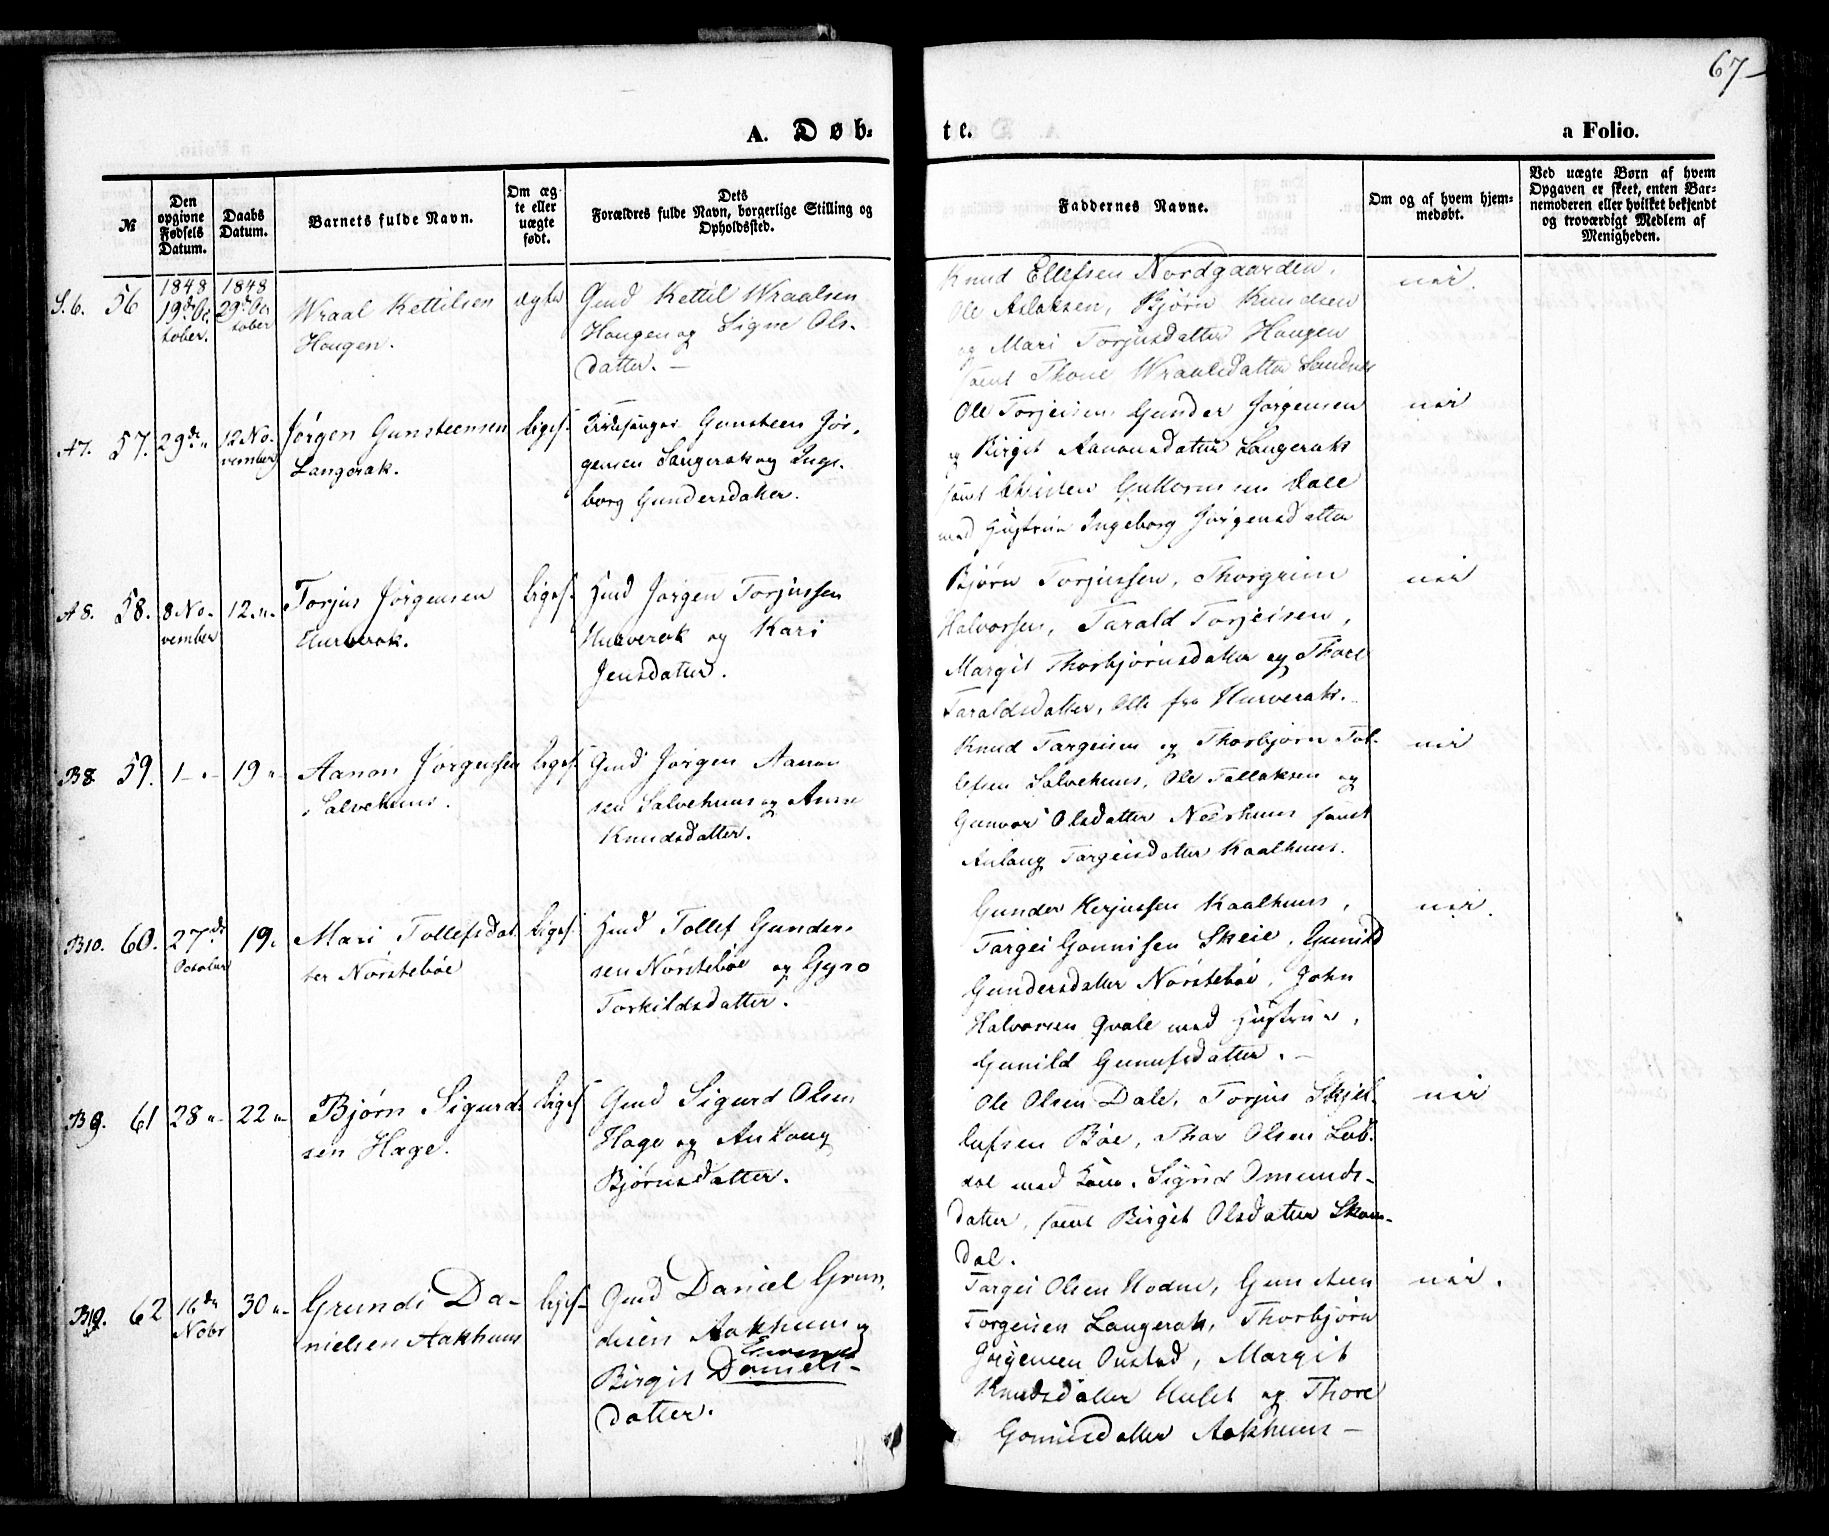 67
A. Døb-
te.
a Folio.
№
Den opgivne Fødsels Datum.
Daabs Datum.
Barnets fulde Navn.
Om ægte eller uægte født.
Dets Forældres fulde Navn, borgerlige Stilling og Opholdssted.
Faddernes Navne.
Om og af hvem hjemmedøbt.
Ved uægte Børn af hvem Opgaven er skeet, enten Barnemoderen eller hvilket bekjendt og troværdigt Medlem af Menigheden.
S.6. 56
1848
19de Oc-
tober.
1848
29de Oc
tober
Wraal Kettilsen
Haugen.
ægte
Gmd Kettil Wraalsen
Haugen og Signe Ols-
datter. —
Knud Ellefsen Nordgaarden,
Ole Aslaksen, Bjørn Knudsen
og Mari Torjusdatter Haugen
samt Thone Wraalsdatter Sandnes
nei.
A7. 57. 29de "
12 No-
vember
Jørgen Gunsteensen
Langerak.
liges.
Kirkesanger Gunsteen Jør-
gensen Langerak og Inge-
borg Gundersdatter.
Ole Torjeisen Gunder Jørgensen
og Birgit Aanonsdatter Langerak
samt Christen Guttormsen Dale
med Hustrue Ingeborg Jørgensdatter
nei
A8. 58. 8 No-
vember
12 "
Torjus Jørgensen
Hurverak.
ligs.
Hmd Jørgen Torjussen
Hurverak og Kari
Jensdatter.
Bjørn Torjussen, Thorgrim
Halvorsen, Tarald Torjeisen,
Margit Thorbjørnsdatter og Thore
Taraldsdatter, Alle fra Hurverak.
nei
B8 59. 1 — " 19 "
Aanon Jørgensen
Salvehuus.
ligs.
Gmd Jørgen Aanon
sen Salvehuus og Anne
Knudsdatter.
Knud Targeisen og Thorbjørn Tol-
lefsen Salvehuus, Ole Tallaksen og
Gunvor Olsdatter Neerhuus samt
Anlaug Targeisdatter Kaalhuus.
nei
B10. 60. 27de
October
19.
Mari Tollefsdat
ter Nørstebøe
ligs.
Hmd Tollef Gunder-
sen Nørstebøe og Gyro
Torkildsdatter.
Gunder Kerjussen Kaalhuus,
Targei Gonnisen Skeie, Gunild
Gundersdatter Nørstebøe, John
Halvorsen Qvale med Hustrue,
Gunild Gunufsdatter. —
nei.
B9. 61 28 " 22 "
Bjørn Sigurd
sen Hage.
liges
Gmd Sigurd Olsen
Hage og Anlaug
Bjørnsdatter.
Ole Olsen Dale, Torjus Skjel-
lufsen Bøe, Thor Olsen Lob-
dal med Kone, Sigrid Omunds-
datter, samt Birgit Olsdatter Skom-
dal.
nei
B19. 62 16de
Nobr
30 "
Grundi Da-
nielsen Aakhuus
liges
Gmd Daniel Grun
disen Aakhuus og
Birgit Daniels-
datter.
Targei Olsen Hodne, Gunsteen
Torgeisen Langerak, Thorbjørn
Jørgensen Onstad, Margit
Knudsdatter Huset og Thore
Gonnisdatter Aakhuus —
nei.